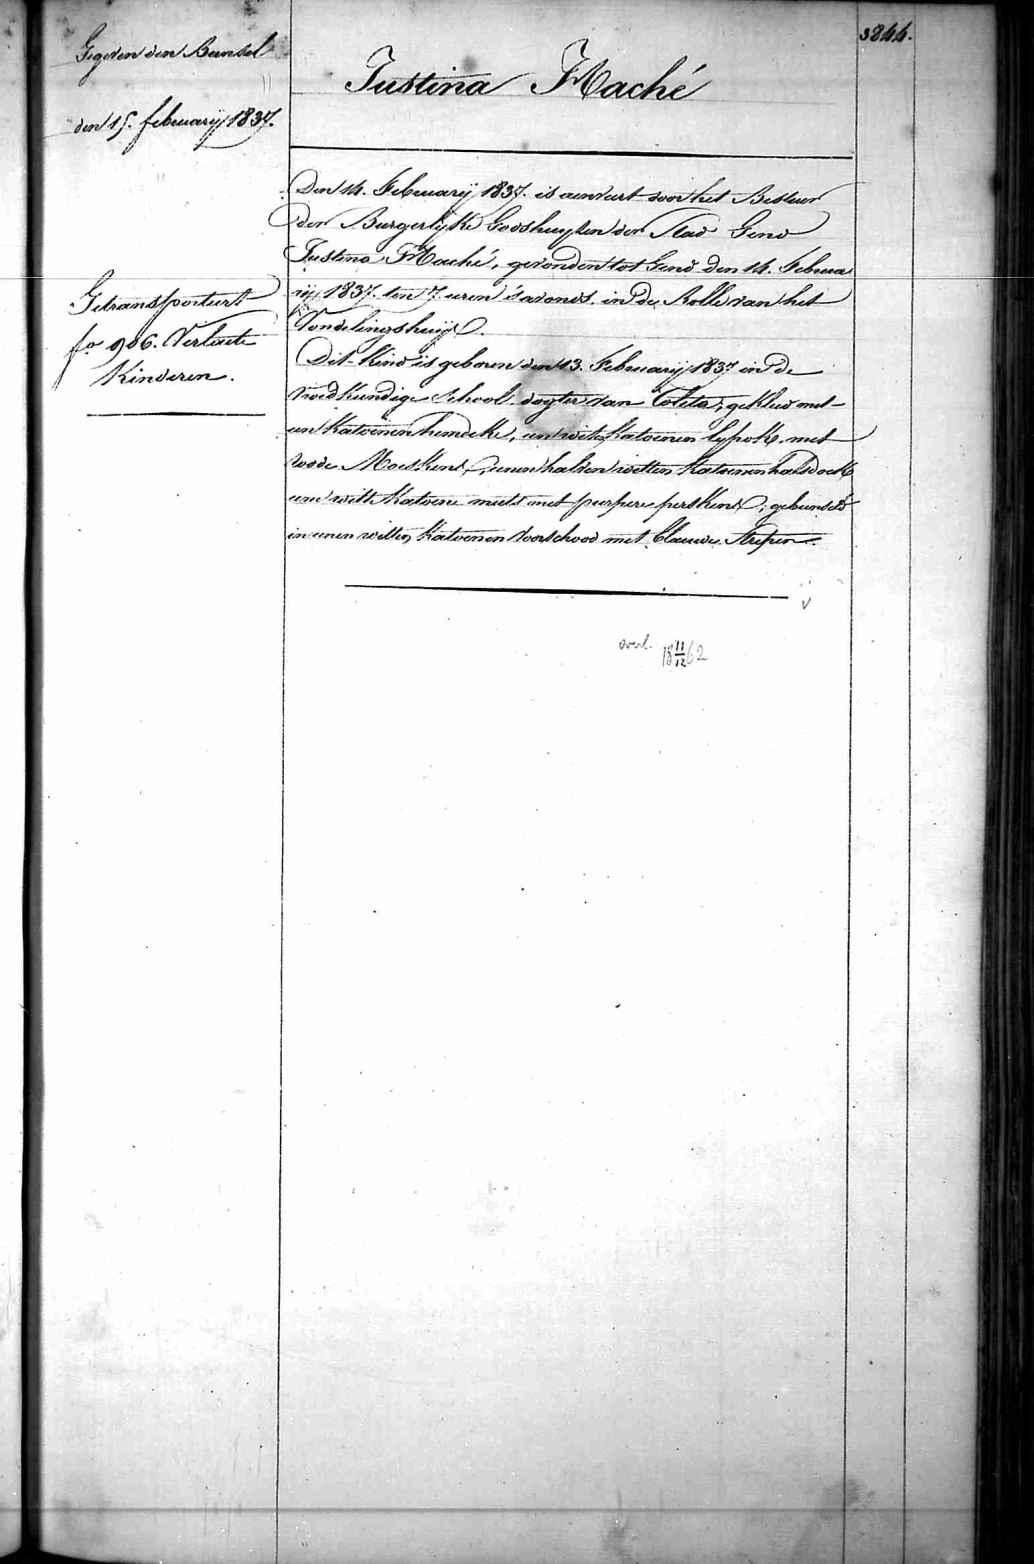 3844.
Gegeven den Bunsel
den 15. februarij 1837.
Getransporteert
fo. 906. Verlaete
Kinderen.
Justina Haché
Den 14. Februarij 1837. is aenveert door het Bestuer
der Burgerlijke Godshuyzen der Stad Gend
Justina Haché, gevonden tot Gend den 14. Februa
rij 1837. ten 7. uren 's avonds. in de Rolle van het
Vondelingshuijs.
Dit Kind is geboren den 13. Februarij 1837 in de
vroedkundige School. dogter van Coleta, gekleed met
een Katoenen hemdeke, een wit Katoenen lijfrok. met
roode Moeskens, eenen halven witten Katoenen halsdoek
eene witte Katoene muts met purpere perskens; gebunseld
in eenen witten Katoenen Voorschood met Blauwe Strepen.
v
overl. 18 11/12 62